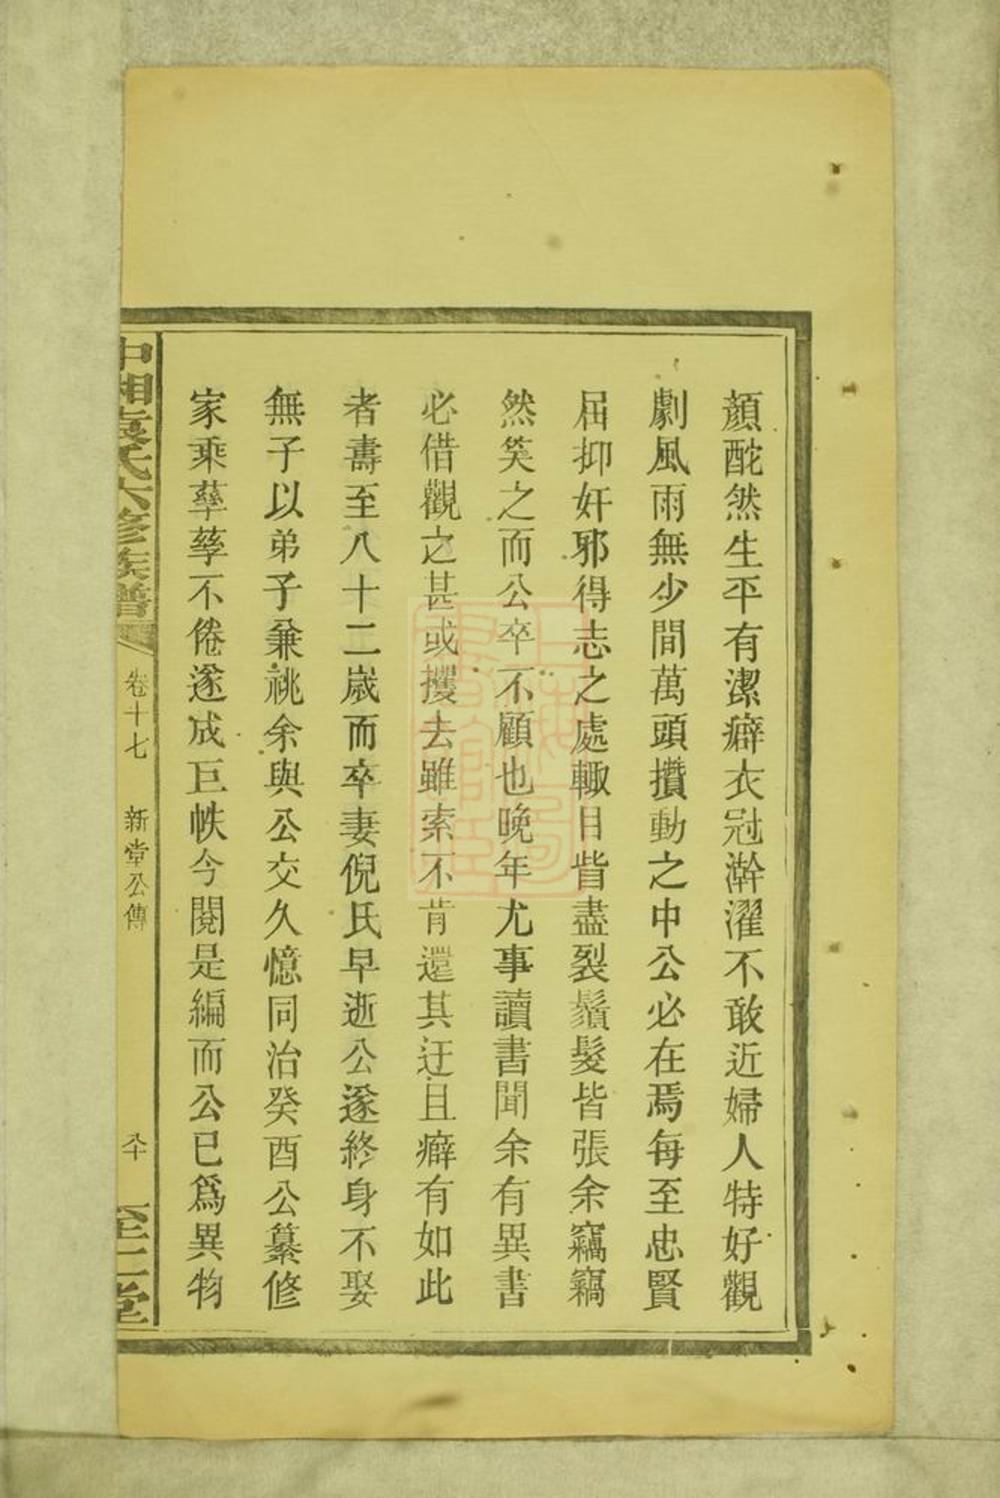 顏酡然生平有潔癖衣冠澣濯不敢近婦人特好觀
劇風雨無少間萬頭攢動之中公必在焉每至忠賢
屈抑奸邪得志之處輙目眥盡裂鬚髮皆張余竊竊
然笑之而公卒不顧也晚年尤事讀書聞余有異書
必借觀之甚或攫去雖索不肯還其迂且癖有如此
者壽至八十二歲而卒妻倪氏早逝公遂終身不娶
無子以弟子兼祧余與公交久憶同治癸酉公纂修
家乘孳孳不倦遂成巨帙今閱是編而公已爲異物
中湘袁氏六修族譜 卷十七 新堂公傳 至仁堂